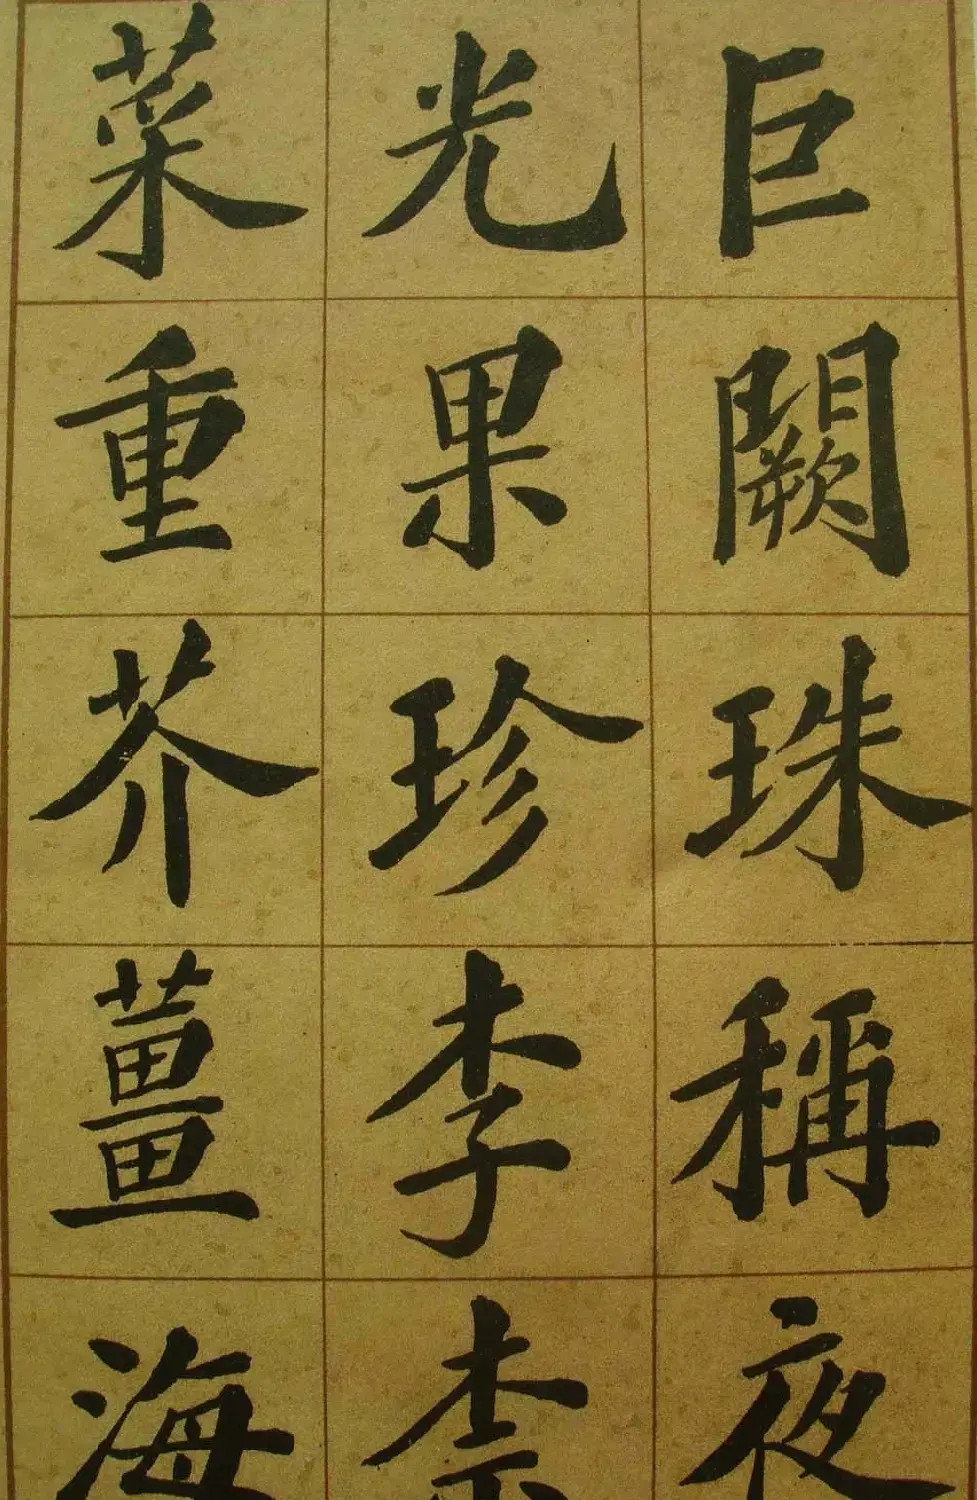 巨闕珠稱夜
光果珍李柰
菜重芥薑海